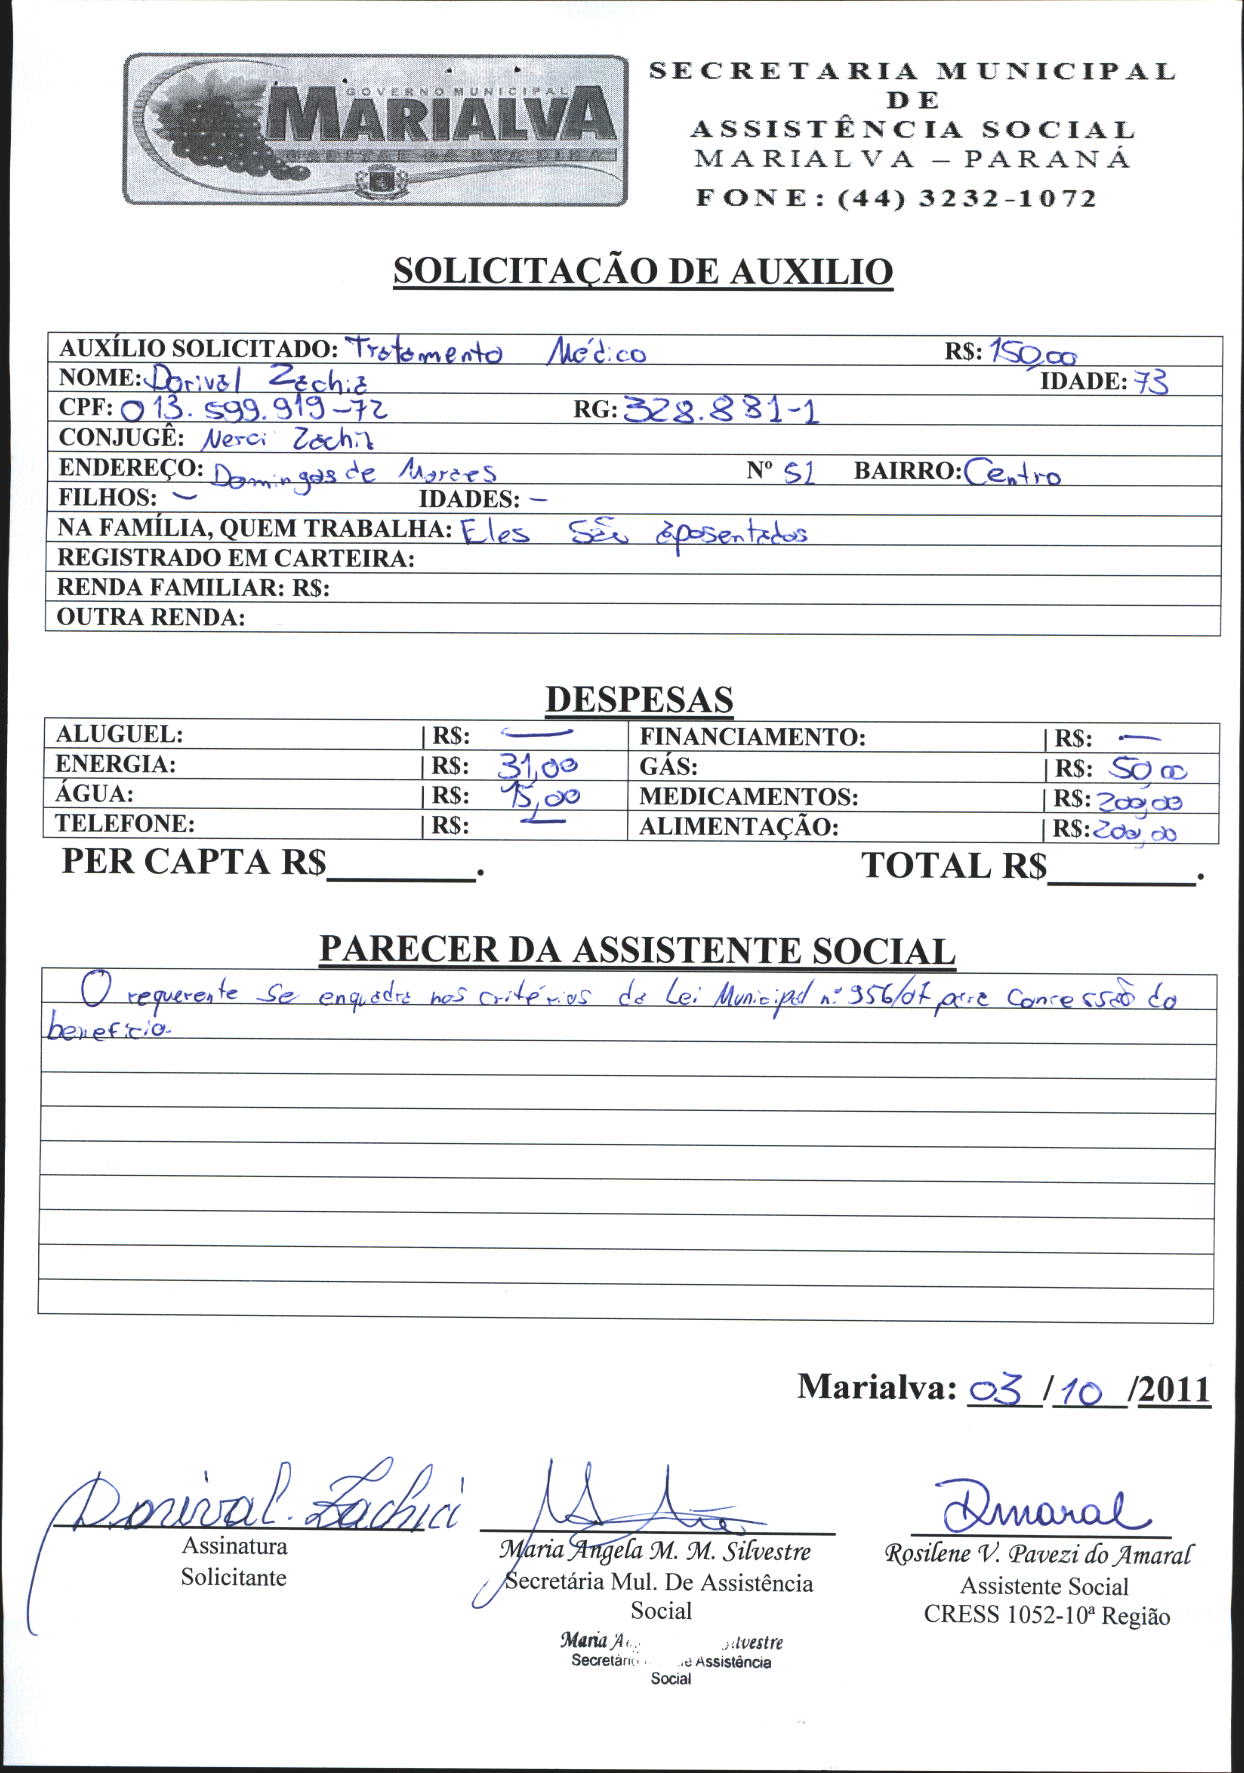 GOVERNO MUNICIPAL
MARIALVA
SECRETARIA MUNICIPAL
DE
ASSISTÊNCIA SOCIAL
MARIALVA – PARANÁ
FONE: (44) 3232-1072
SOLICITAÇÃO DE AUXILIO
AUXÍLIO SOLICITADO: Tratamento Médico R$: 150,00
NOME: Dorival Zachia IDADE: 73
CPF: 013.599.919-72 RG: 328.881-1
CONJUGÊ: Nerci Zachia
ENDEREÇO: Domingos de Moraes Nº 51 BAIRRO: Centro
FILHOS: – IDADES: –
NA FAMÍLIA, QUEM TRABALHA: Eles são aposentados
REGISTRADO EM CARTEIRA:
RENDA FAMILIAR: R$:
OUTRA RENDA:
DESPESAS
ALUGUEL: | R$: — FINANCIAMENTO: | R$: —
ENERGIA: | R$: 31,00 GÁS: | R$: 50,00
ÁGUA: | R$: 15,00 MEDICAMENTOS: | R$: 200,00
TELEFONE: | R$: — ALIMENTAÇÃO: | R$: 200,00
PER CAPTA R$________. TOTAL R$________.
PARECER DA ASSISTENTE SOCIAL
O requerente se enquadra nos critérios da Lei Municipal nº 956/07 para concessão do
benefício.
Marialva: 03/10/2011
Dorival Zachia Amaral
Assinatura Maria Angela M. M. Silvestre Rosilene V. Pavezi do Amaral
Solicitante Secretária Mul. De Assistência Assistente Social
Social CRESS 1052-10ª Região
Maria silvestre
Assistência
Social